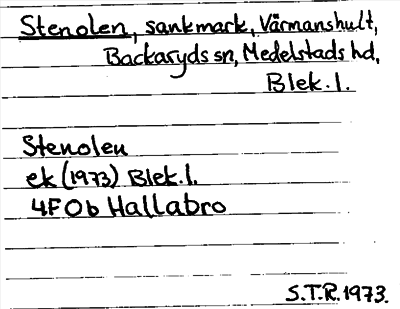 Stenolen, sankmark, Värmanshult,
Backaryds sn, Medelstads hd,
Blek. l.
Stenolen
ek (1973) Blek. l.
4F0b Hallabro
S.T.R. 1973.